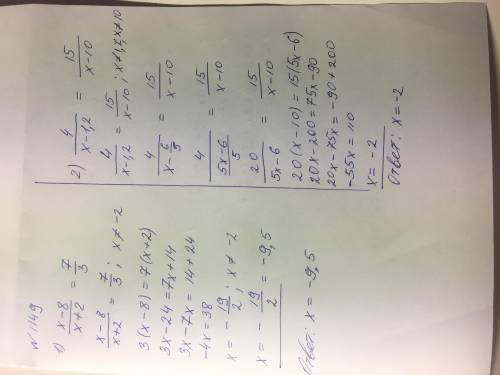 N 1149
1) x-8/x+2 = 7/3
x-8/x+2 = 7/3; x≠-2
3(x-8)=7(x+2)
3x-24=7x+14
3x-7x=14+24
-4x=38
x=-19/2; x≠-2
x=-19/2=-9,5
Ответ: x=-9,5
2) 4/x-1,2 = 15/x-10
4/x-1,2 = 15/x-10; x≠1,2, x≠10
4/x-6/5 = 15/x-10
4/5x-6/5 = 15/x-10
20/5x-6 = 15/x-10
20(x-10)=15(5x-6)
20x-200=75x-90
20x-75x=-90+200
-55x=110
x=-2
Ответ: x=-2